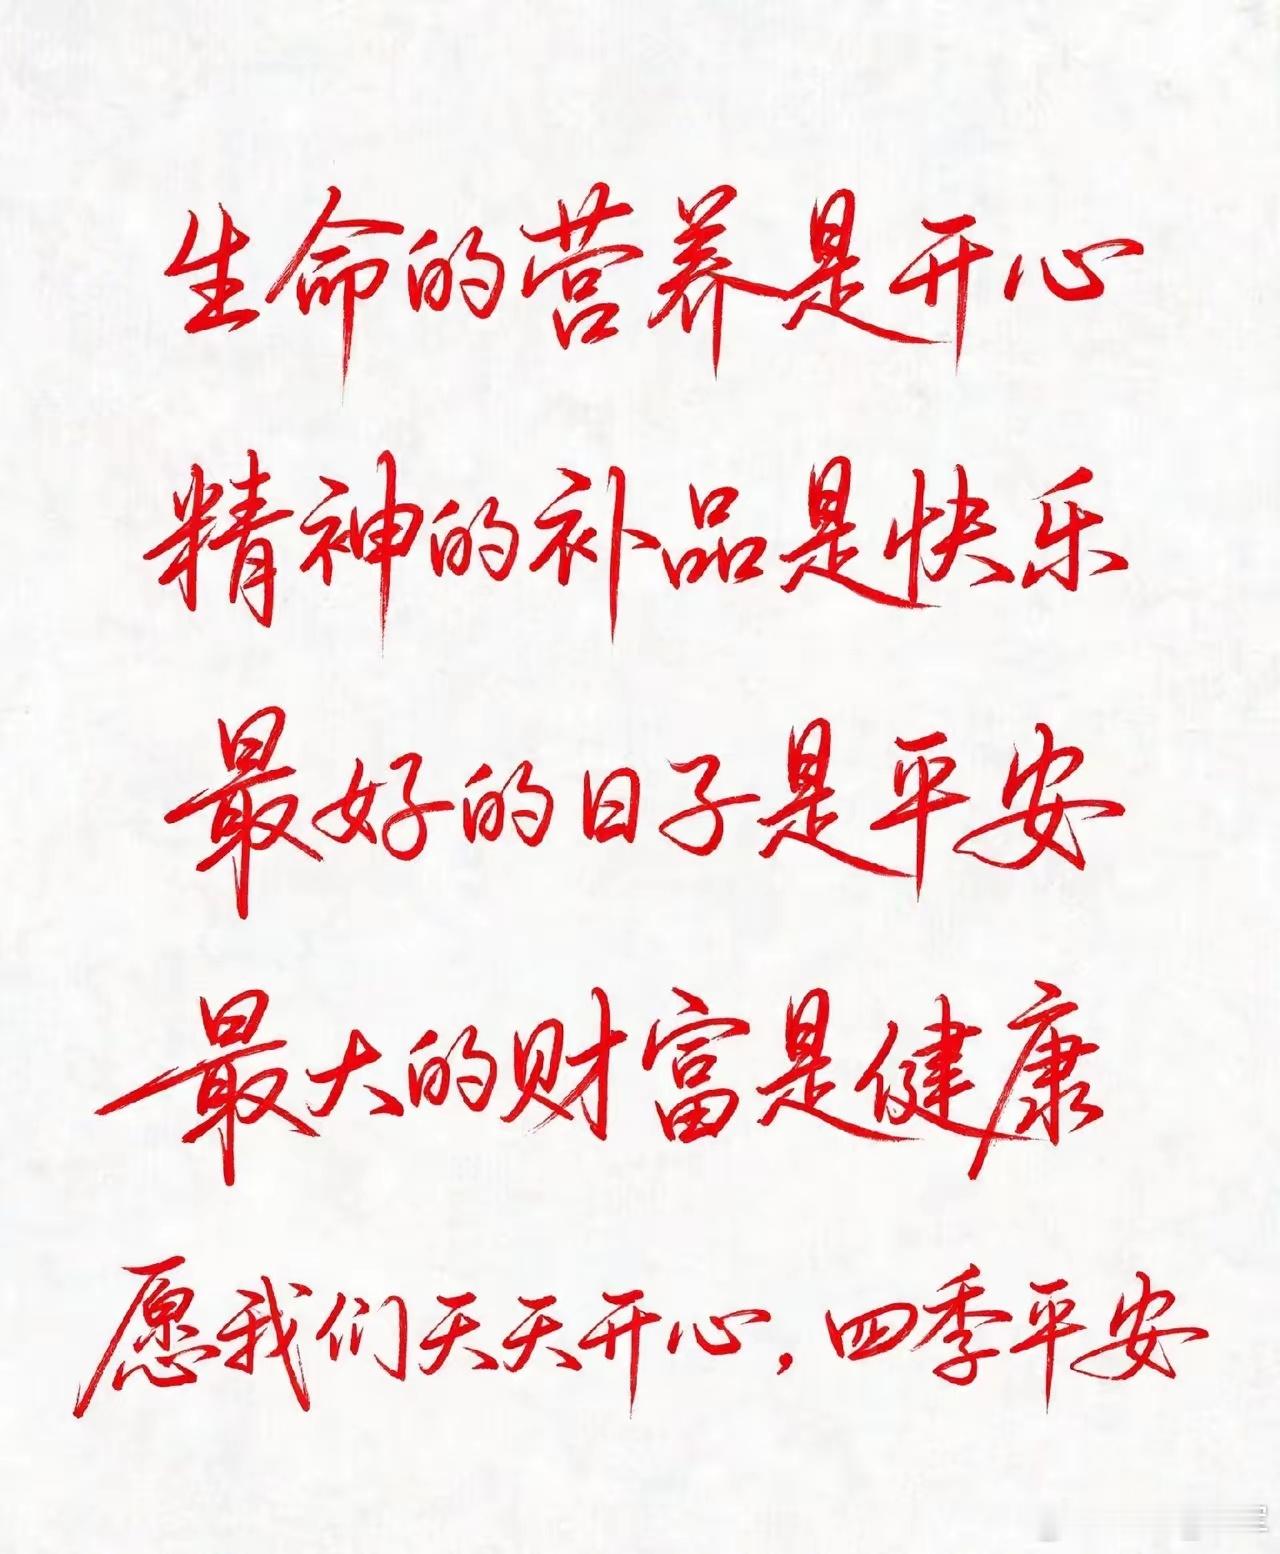 生命的营养是开心
精神的补品是快乐
最好的日子是平安
最大的财富是健康
愿我们天天开心，四季平安